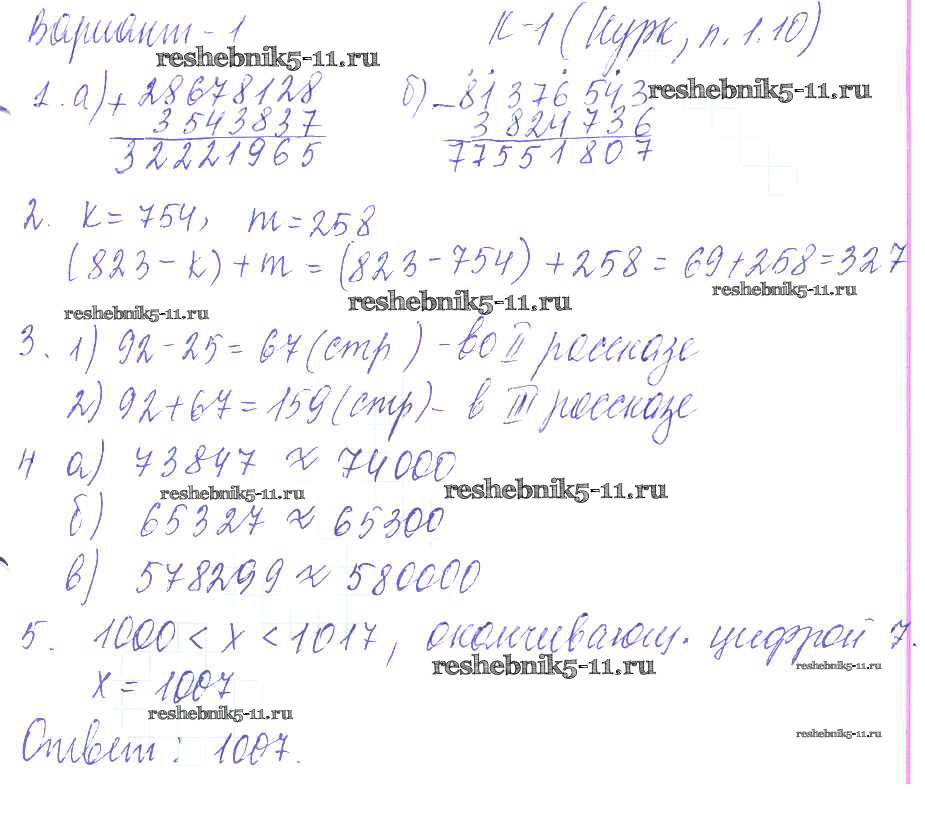 Вариант-1 К-1 (Нурк, п. 1.10)
reshebnik5-11.ru
1. а) + 28678128 б) - 81376543 reshebnik5-11.ru
3543837 3824736
32221965 77551807
2. k = 754, m = 258
(823 - k) + m = (823 - 754) + 258 = 69 + 258 = 327
reshebnik5-11.ru reshebnik5-11.ru reshebnik5-11.ru
3. 1) 92 - 25 = 67 (стр) - во II рассказе
2) 92 + 67 = 159 (стр) - в III рассказе
4 а) 73847 ≈ 74000
reshebnik5-11.ru reshebnik5-11.ru
б) 65327 ≈ 65300
в) 578299 ≈ 580000
5. 1000 < x < 1017, оканчивающ. цифрой 7.
reshebnik5-11.ru reshebnik5-11.ru
x = 1007
reshebnik5-11.ru
Ответ: 1007.
reshebnik5-11.ru